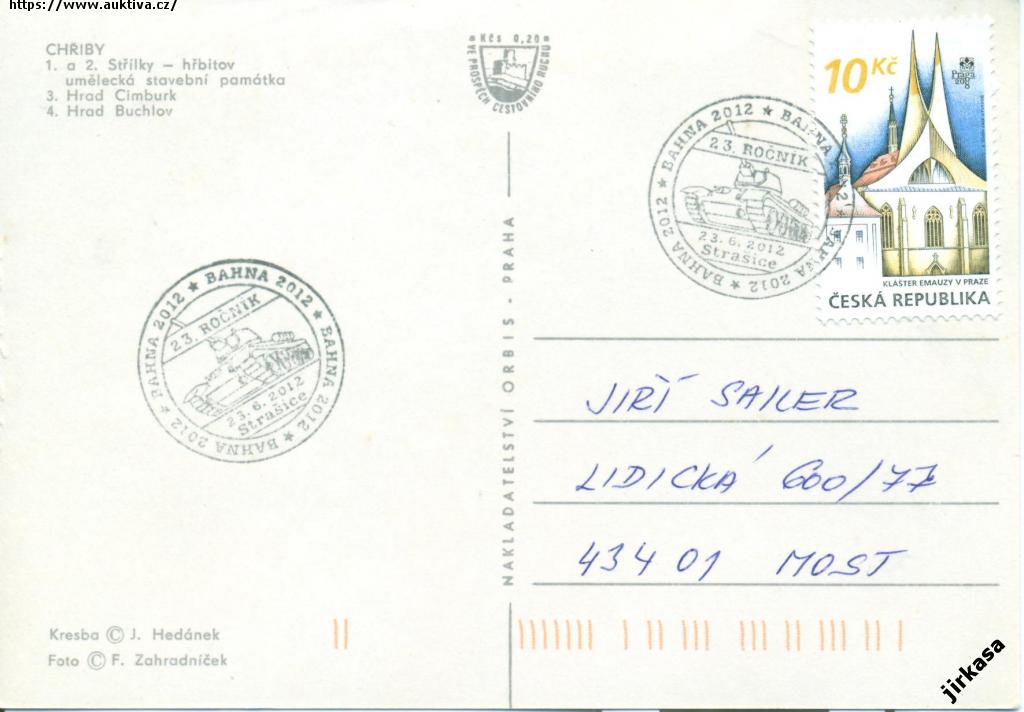 https://www.auktiva.cz/
CHŘIBY
1. a 2. Střílky – hřbitov
umělecká stavební památka
3. Hrad Cimburk
4. Hrad Buchlov
Kčs 0,20
VE PROSPĚCH CESTOVNÍHO RUCHU
BAHNA 2012 ★ BAHNA 2012 ★ BAHNA 2012 ★ BAHNA 2012 ★
23. ROČNÍK
23.6.2012
Strašice
10 Kč
Praga
2008
KLÁŠTER EMAUZY V PRAZE
ČESKÁ REPUBLIKA
BAHNA 2012 ★ BAHNA 2012 ★ BAHNA 2012 ★ BAHNA 2012 ★
23. ROČNÍK
23.6.2012
Strašice
NAKLADATELSTVÍ ORBIS - PRAHA
JIŘÍ SAILER
LIDICKÁ 600/77
434 01 MOST
Kresba © J. Hedánek
Foto © F. Zahradníček
jirkasa